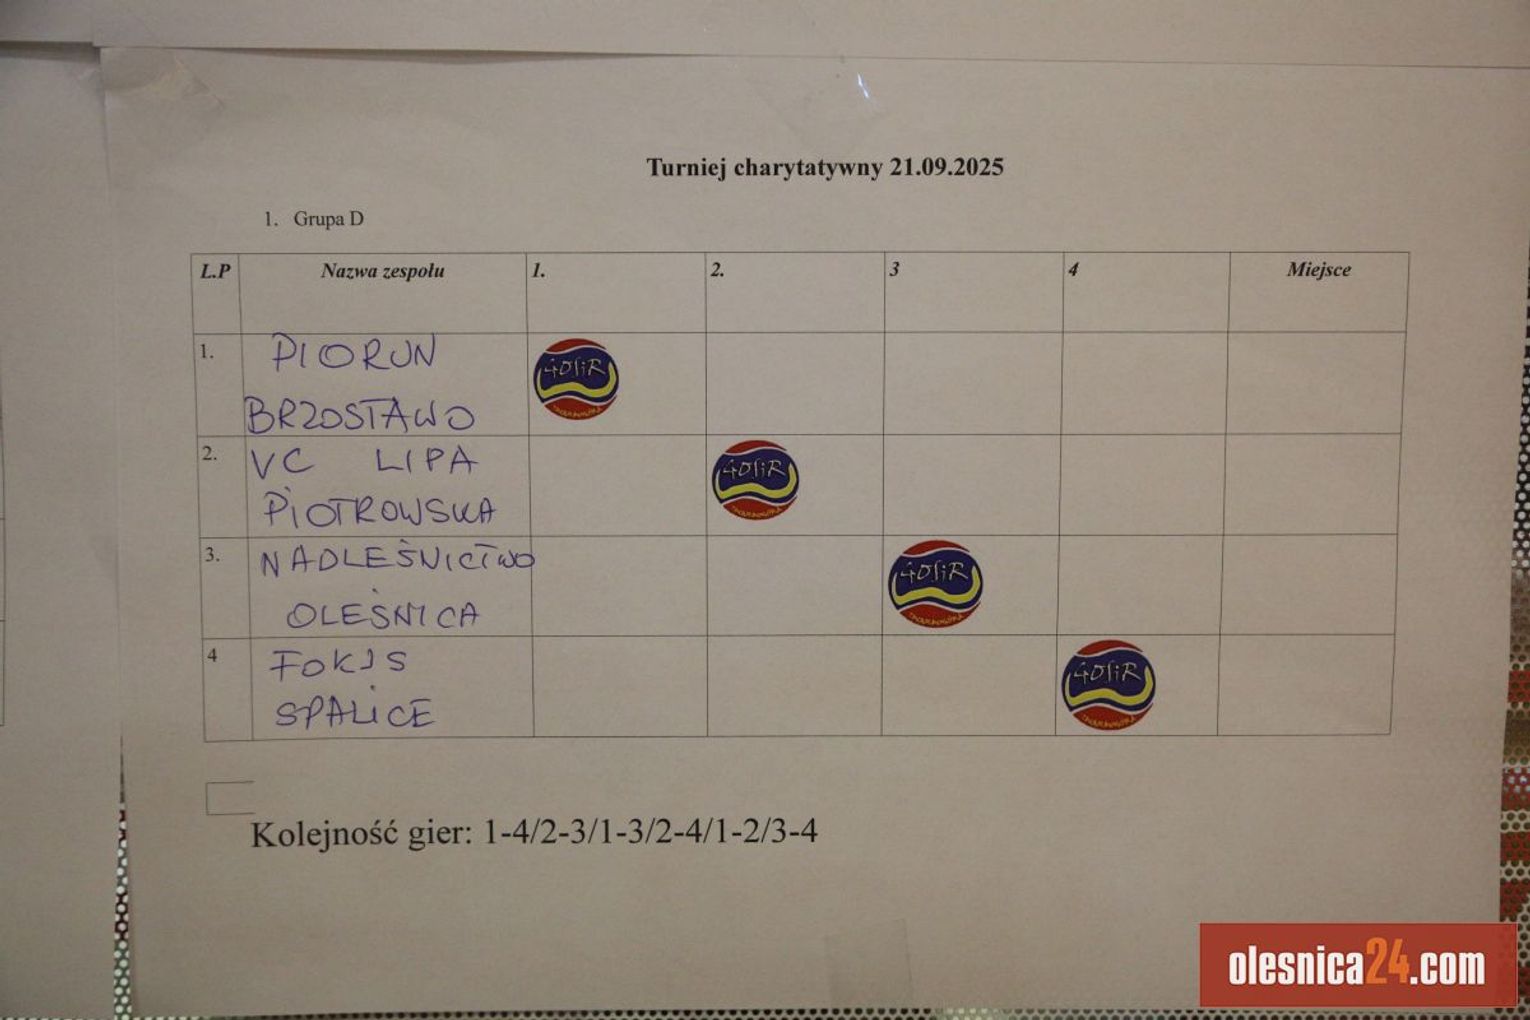 Turniej charytatywny 21.09.2025
1. Grupa D
L.P Nazwa zespołu 1. 2. 3 4 Miejsce
1. PIORUN
BRZOSTAWO
4OSiR
2. VC LIPA
PIOTROWSKA
4OSiR
3. NADLEŚNICTWO
OLEŚNICA
4OSiR
4 FOKIS
SPALICE
4OSiR
Kolejność gier: 1-4/2-3/1-3/2-4/1-2/3-4
olesnica24.com